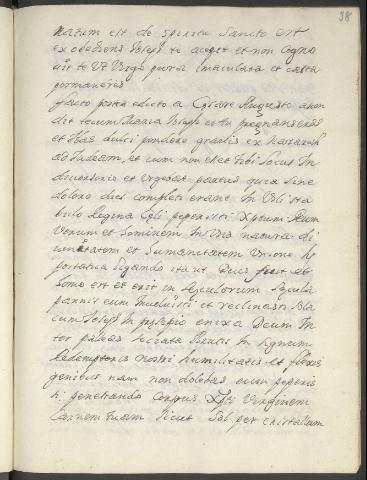 38
natum est de spiritu sancto est
exobediens Joseph te accepit et non cogno
uit te Vt Virgo pura imaculata et casta
permaneres
facto postea edicto a Cesare Augusto ascen
dit tecum Maria Joseph et tu pregnans eras
et ibas dulci pondere grauis ex Nazareth
ad Judeam, et cum non esset tibi locus In
diuersorio et Vrgebat partus quia sine
dolore dies completi erant In Vili sta
bulo Regina Celi peperisti Xptum Deum
Verum et hominem In Vna natura di
uinitatem et humanitatem Vnione
ligando ita ut Deus fuit et
homo est et erit in seculorum secula
pannis eum Inuoluisti et reclinasti
cum Joseph In presepio enixa Deum In
ter paleas In signum
Redemptoris nostri humilitatis et flexis
genibus nam non dolebas cum peperis
ti penetrando Corpus Xpti Virgineam
Carnem tuam sicut Sol per christallum